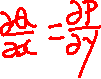 ∂Q/∂x = ∂P/∂y